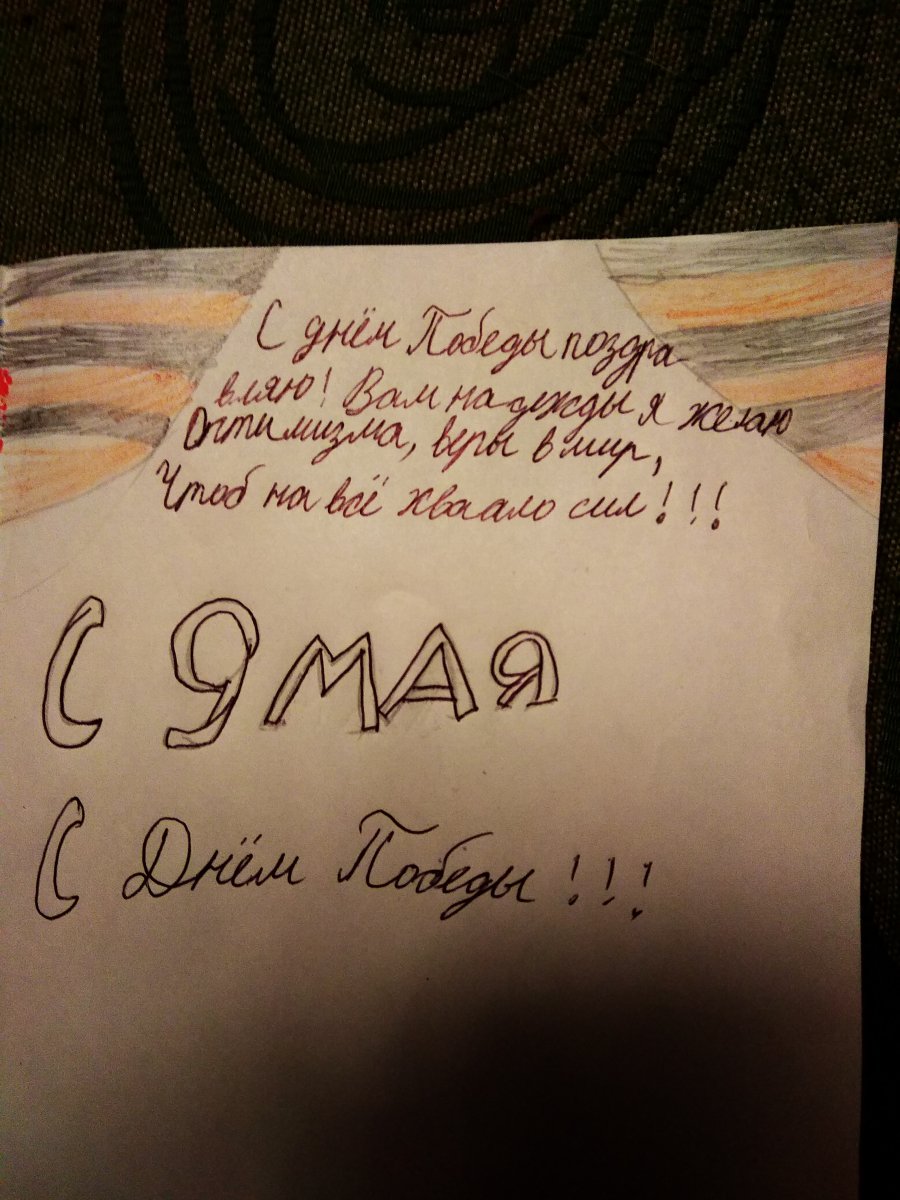 С днём Победы поздра-
вляю! Вам надежды я желаю
Оптимизма, веры в мир,
Чтоб на всё хваало сил!!!
С 9 МАЯ
С Днём Победы!!!